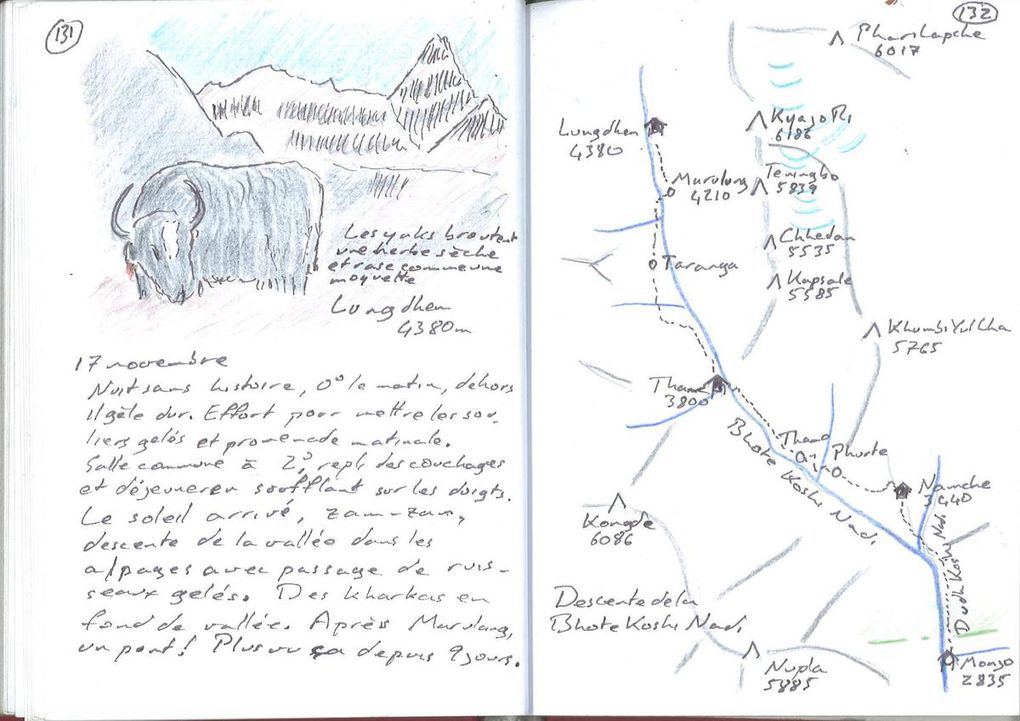 131
Les yaks broutent
une herbe sèche
et rase comme une
moquette
Lungdhen
4380m
17 novembre
Nuit sans histoire, 0° le matin, dehors
il gèle dur. Effort pour mettre les sou-
liers gelés et promenade matinale.
Salle commune à 2°, repli des couchages
et déjeuner en soufflant sur les doigts.
Le soleil arrivé, zam-zam,
descente de la vallée dans les
alpages avec passage de ruis-
seaux gelés. Des Kharkas en
fond de vallée. Après Marulung,
un pont! Plus vu ça depuis 9 jours.
132
Pharilapche
6017
Kyajo Ri
6186
Lungdhen
4380
Teningbo
5839
Marulung
4210
Chhedan
5535
Taranga
Kapsale
5585
Khumbi Yul Lha
5765
Thame
3800
Bhote Koshi Nadi
Thamo
Phurte
Namche
3440
Kongde
6086
Dudh Koshi Nadi
Descente de la
Bhote Koshi Nadi
Nupla
5885
Monjo
2835